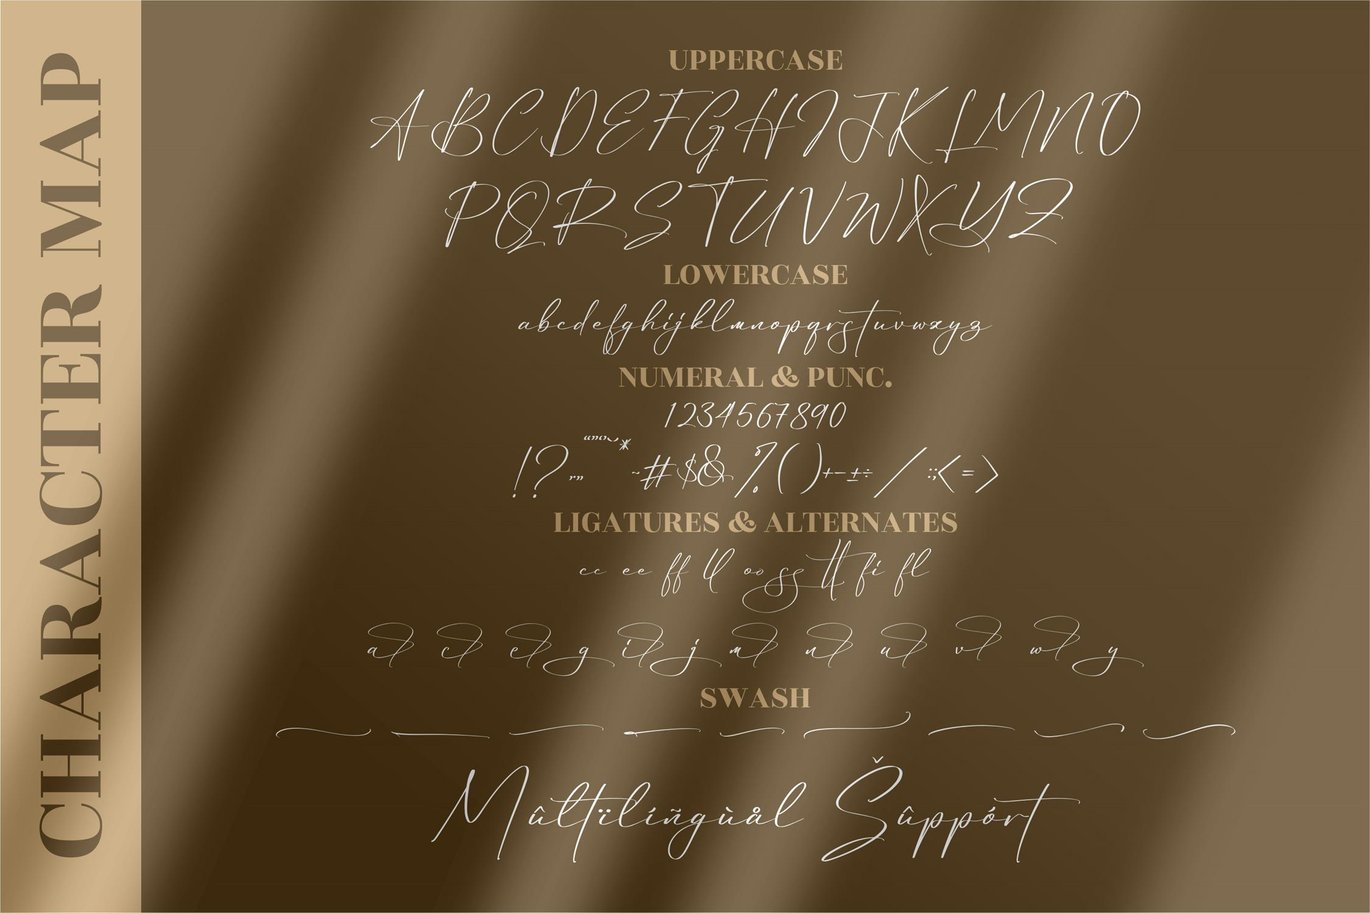 CHARACTER MAP
UPPERCASE
ABCDEFGHIJKLMNO
PQRSTUVWXYZ
LOWERCASE
abcdefghijklmnopqrstuvwxyz
NUMERAL & PUNC.
1234567890
!?,,,“”‘’~* -#$&%()+-±÷/:;<=>
LIGATURES & ALTERNATES
cc ee ff ll oo ss tt fi fl
a c e g i j m n u v w y
SWASH
Mûltïlíñgùål Šûppórt